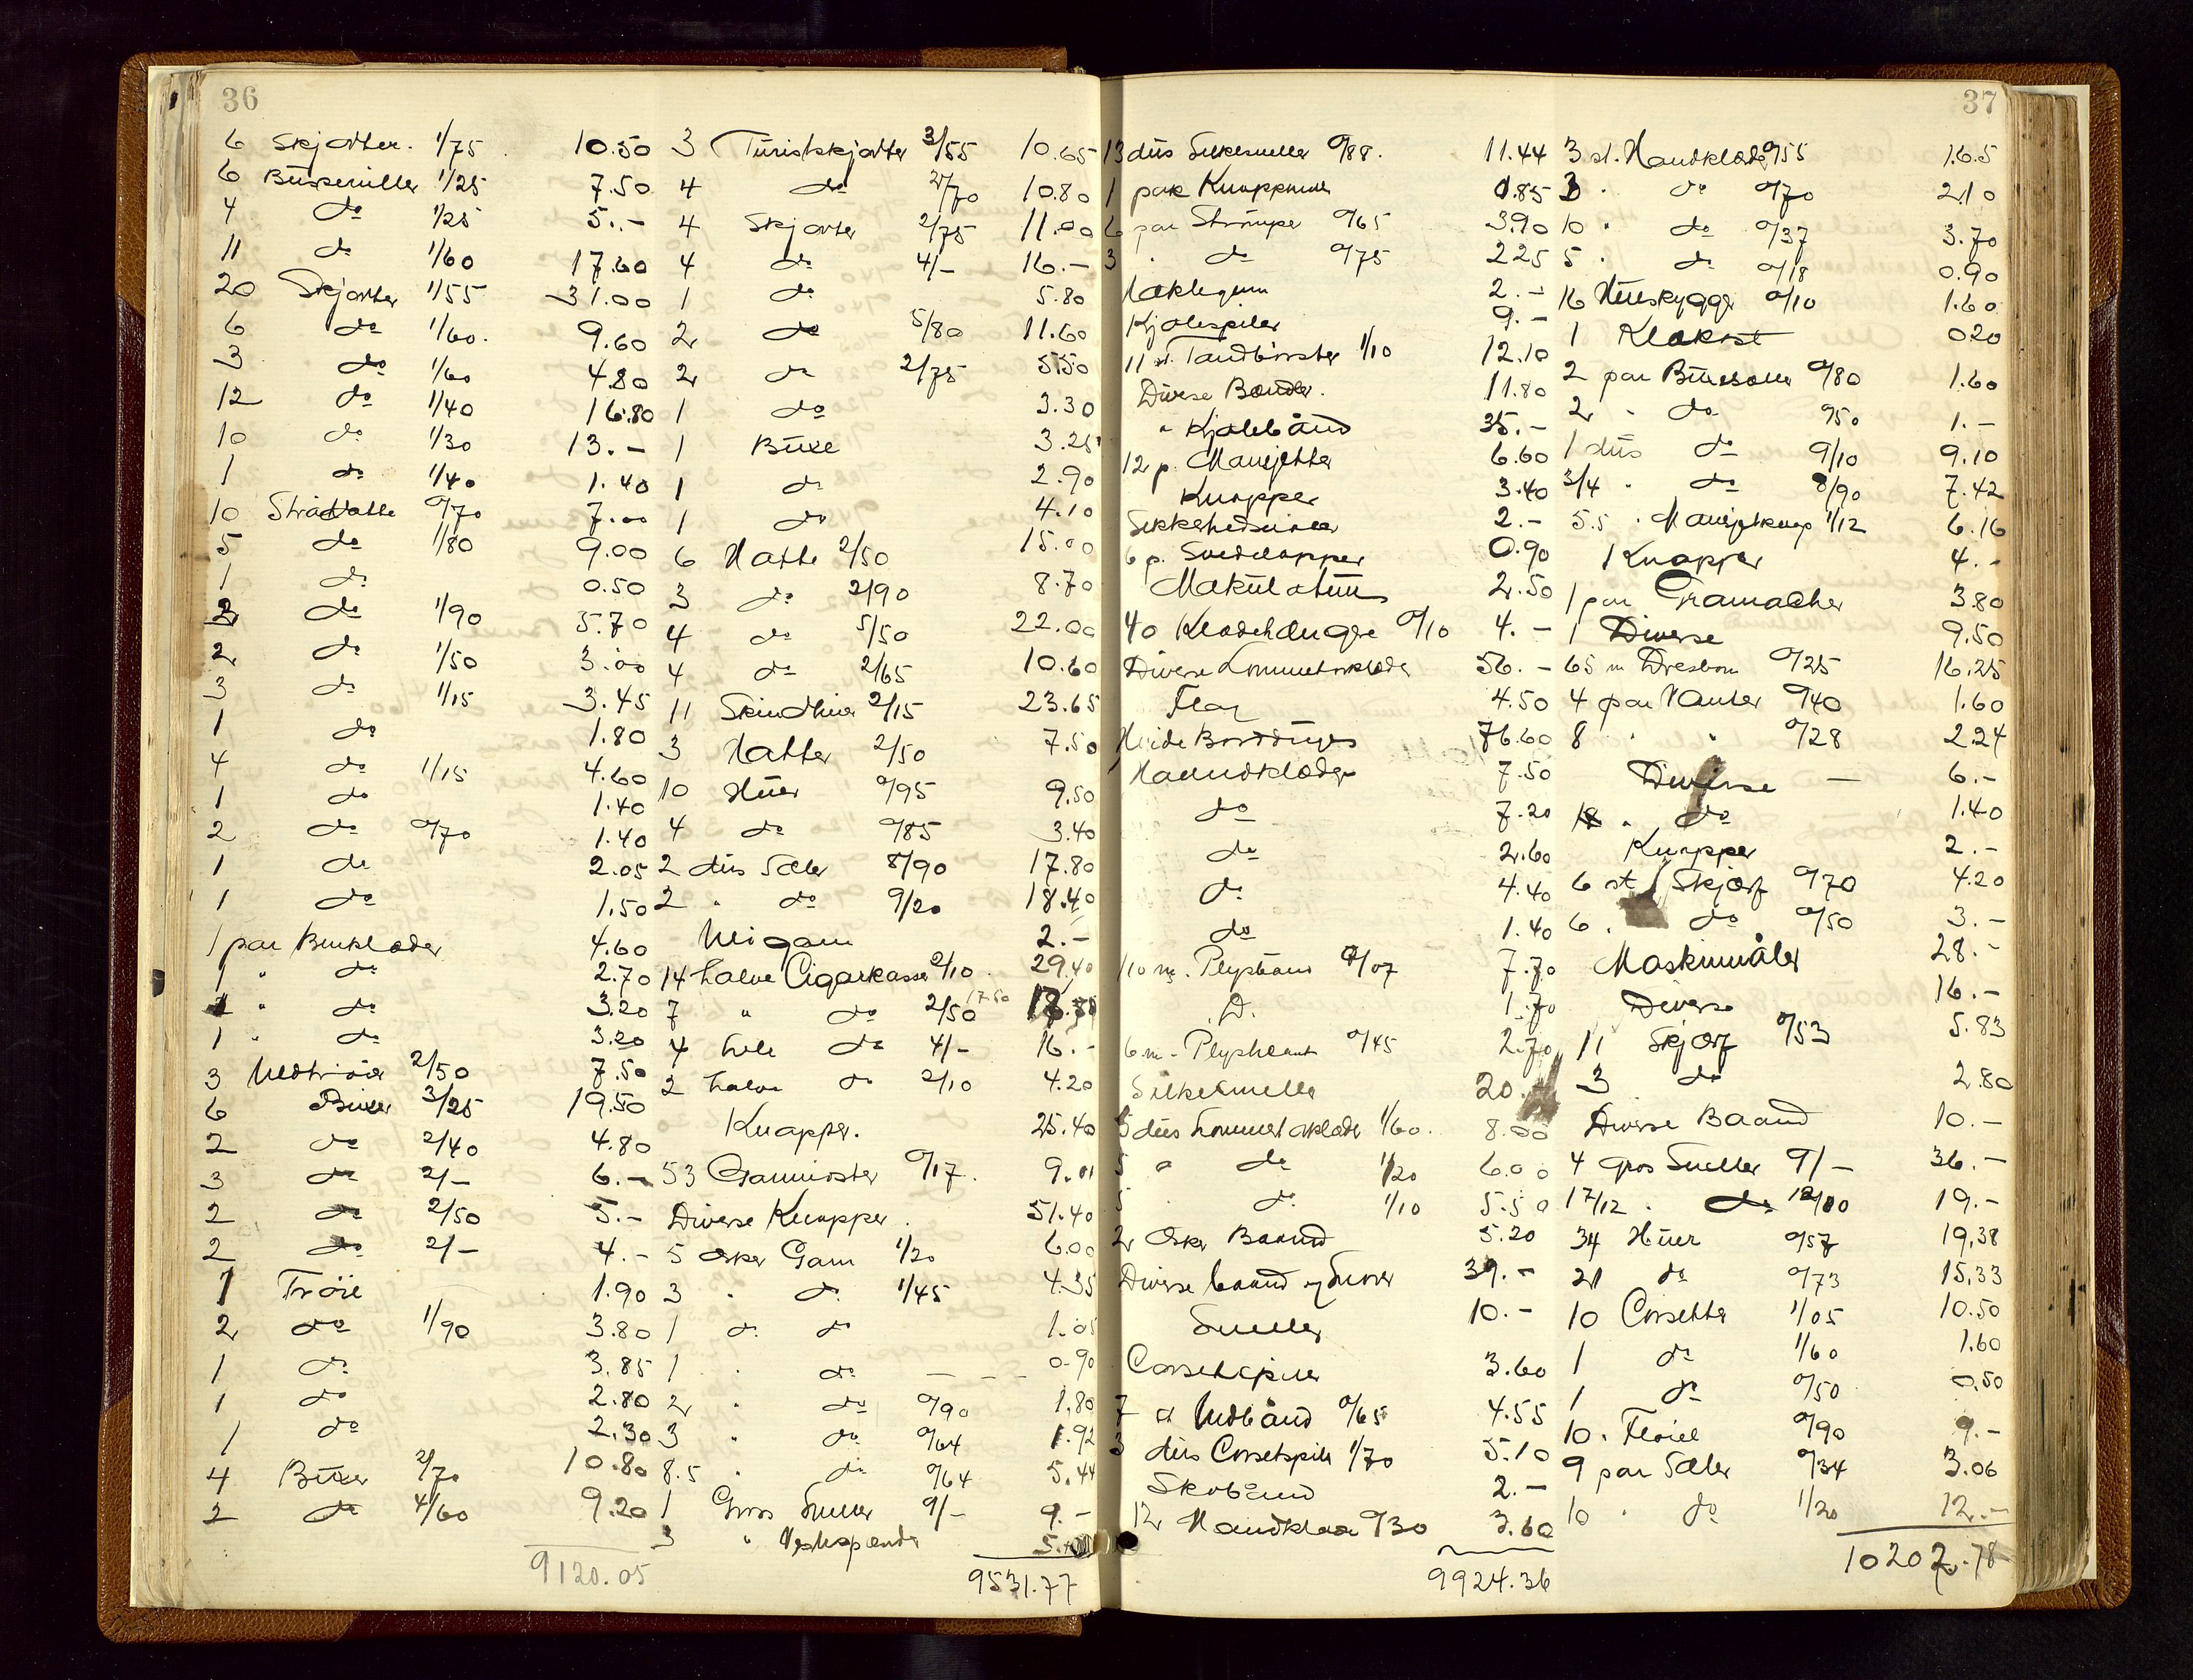 36
6 Skjorter. 1/75 10.50
6 Büsseruller 1/25 7.50
4 do 1/25 5.-
11 do 1/60 17.60
20 Skjorter 1/55 31.00
6 do 1/60. 9.60
3 do 1/60 4.80
12 do 1/40 16.80
10 do 1/30 13.-
1 do 1/40 1.40
10 Stråhatte 0/70 7.00
5 do 1/80 9.00
1 do 0.50
3 do 1/90 5.70
2 do 1/50 3.00
3 do 1/15 3.45
1 do 1.80
4 do 1/15 4.60
1 do 1.40
2 do 0/70 1.40
1 do 2.05
1 do 1.50
1 par Benklæder 4.60
1 " do 2.70
1 " do 3.20
1 " do 3.20
3 Uldtröier 2/50 7.50
6 Büxer 3/25 19.50
2 do 2/40 4.80
3 do 2/- 6.-
2 do 2/50 5.-
2 do 2/- 4.-
1 Tröie 1.90
2 do 1/90 3.80
1 do 3.85
1 do 2.80
1 do 2.30
4 Büxer 2/70 10.80
2 do 4/60 9.20
9120.05
3 Türistskjorter 3/55 10.65
4 do 2/70 10.80
4 Skjorter 2/75 11.00
4 do 4/- 16.-
1 do 5.80
2 do 5/80 11.60
2 do 2/75 5.50
1 do 3.30
1 Büxe 3.25
1 do 2.90
1 do 4.10
6 Hatte 2/50 15.00
3 do 2/90 8.70
4 do 5/50 22.00
4 do 2/65 10.60
11 Skindhüer 2/15 23.65
3 Hatter 2/50 7.50
10 Hüer 0/95 9.50
4 do 0/85 3.40
2 düs Sæler 8/90 17.80
2 " do 9/20 18.40
Uldgarn 2.-
14 halve Cigarkasser 2/10. 29.40
7 " do 2/50 17.50
4 hele do 4/- 16.-
2 halve do 2/10 4.20
Knapper. 25.40
53 Garnnöster 0/17. 9.01
Diverse Knapper. 51.40
5 æsker Garn 1/20 6.00
3 " do 1/45 4.35
1 do do 1.05
1 " do 0.90
2 " do 0/90 1.80
3 " do 0/64 1.92
8.5 " do 0/64 5.44
1 Gros Sneller 9/- 9.-
3 " Vestespænder
9531.77
37
13 düs Silkesneller 0/88. 11.44
1 pak Knappenaaler 0.85
6 par Strömper 0/65 3.90
3 " do 0/75 2.25
2.-
Kjolespiler 9.-
11 st. Tandbörster 1/10 12.10
Diverse Bænder. 11.80
" Kjolebånd 35.-
12 p. Mansjetter 6.60
Knapper 3.40
Sikkerhedsnaaler 2.-
6 p. Svedelapper 0.90
Makülatür 2.50
40 Klædehængere 0/10 4.-
Diverse Lommetörklæder 56.-
Flor 4.50
Hvide Bordüres 76.60
Haandklæder 7.50
do 7.20
do 2.60
do 4.40
do 1.40
110 m. Plyshsnor 0/07 7.70
D. 1.70
6 m. Plyshkant 0/45 2.70
Silkesneller 20.-
5 düs Lommetörklæder 1/60. 8.00
5 " do 1/20 6.00
5 do 1/10 5.50
2 Æsker Baand 5.20
Diverse baand og Snorer 39.-
Sneller 10.-
Corsetspiler 3.60
7 st Uldbånd 0/65 4.55
3 düs Corsetspiler 1/70 5.10
Skobånd 2.-
12 Handklæder 0/30 3.60
9924.36
3 st. Handklæder 0/55 1.65
3 " do 0/70 2.10
10 " do 0/37 3.70
5 " do 0/18 0.90
16 Hüeskygger 0/10 1.60
1 Klækost 0.20
2 par Büxesæler 0/80 1.60
2 " do 0/50 1.-
1 düs do 9/10 9.10
3/4 " do 8/90 7.42
5.5 " Mansjetknap 1/12 6.16
Knapper 4.-
1 par Gramascher 3.80
1 Diverse 9.50
65 m Dresbom 0/25 16.25
4 par Vanter 0/40 1.60
8 " " 0/28 2.24
Diverse - 6.-
" do 1.40
Knapper 2.-
6 st Skjærf 0/70 4.20
6 " do 0/50 3.-
Maskinnåler 28.-
Diverse 16.-
11 Skjærf 0/53 5.83
3 do 2.80
Diverse Baand 10.-
4 gros Sneller 9/- 36.-
17/12 " do 19.-
34 Hüer 0/57 19,38
21 do 0/73 15,33
10 Corsetter 1/05 10.50
1 do 1/60 1.60
1 do 0/50 0.50
10 " Flöiel 0/90 9.-
9 par Sæler 0/34 3.06
10 " do 1/20 12.-
10202.78